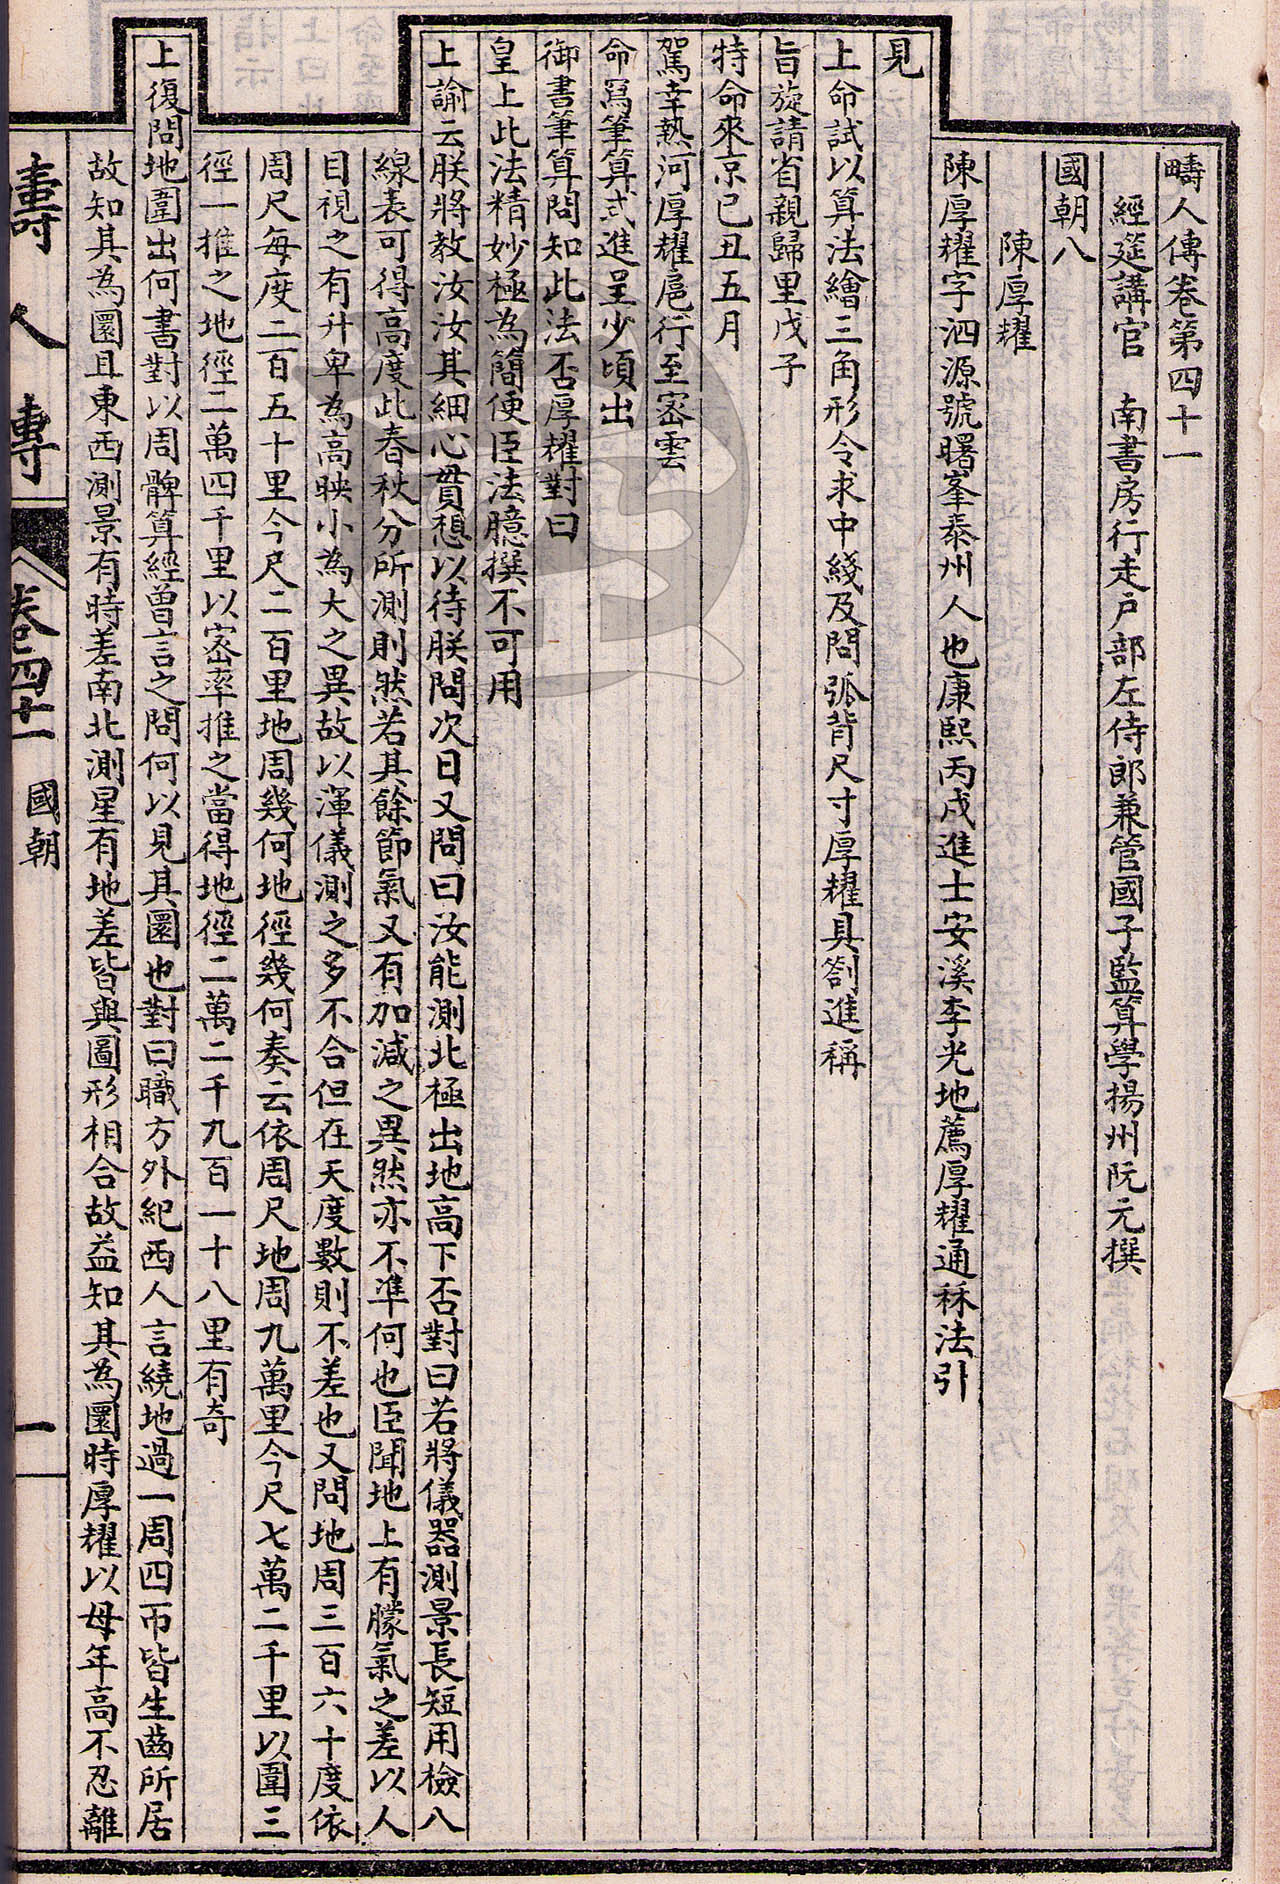 疇人傳卷第四十一
經筵講官　南書房行走戶部左侍郎兼管國子監算學揚州阮元撰
國朝八
陳厚耀
陳厚耀字泗源號曙峯泰州人也康熙丙戌進士安溪李光地薦厚耀通秝法引
見
上命試以算法繪三角形令求中綫及問弧背尺寸厚耀具劄進稱
旨旋請省親歸里戊子
特命來京已丑五月
駕幸熱河厚耀扈行至密雲
命寫筆算式進呈少頃出
御書筆算問知此法否厚耀對曰
皇上此法精妙極為簡便臣法臆撰不可用
上諭云朕將教汝汝其細心貫想以待朕問次日又問曰汝能測北極出地高下否對曰若將儀器測景長短用檢八
線表可得高度此春秋分所測則然若其餘節氣又有加減之異然亦不準何也臣聞地上有朦氣之差以人
目視之有升卑為高映小為大之異故以渾儀測之多不合但在天度數則不差也又問地周三百六十度依
周尺每度二百五十里今尺二百里地周幾何地徑幾何奏云依周尺地周九萬里今尺七萬二千里以圍三
徑一推之地徑二萬四千里以密率推之當得地徑二萬二千九百一十八里有奇
上復問地圓出何書對以周髀算經曾言之問何以見其圜也對曰職方外紀西人言繞地過一周四帀皆生齒所居
故知其為圜且東西測景有時差南北測星有地差皆與圜形相合故益知其為圜時厚耀以母年高不忍離
疇人傳
卷四十一
國朝
一